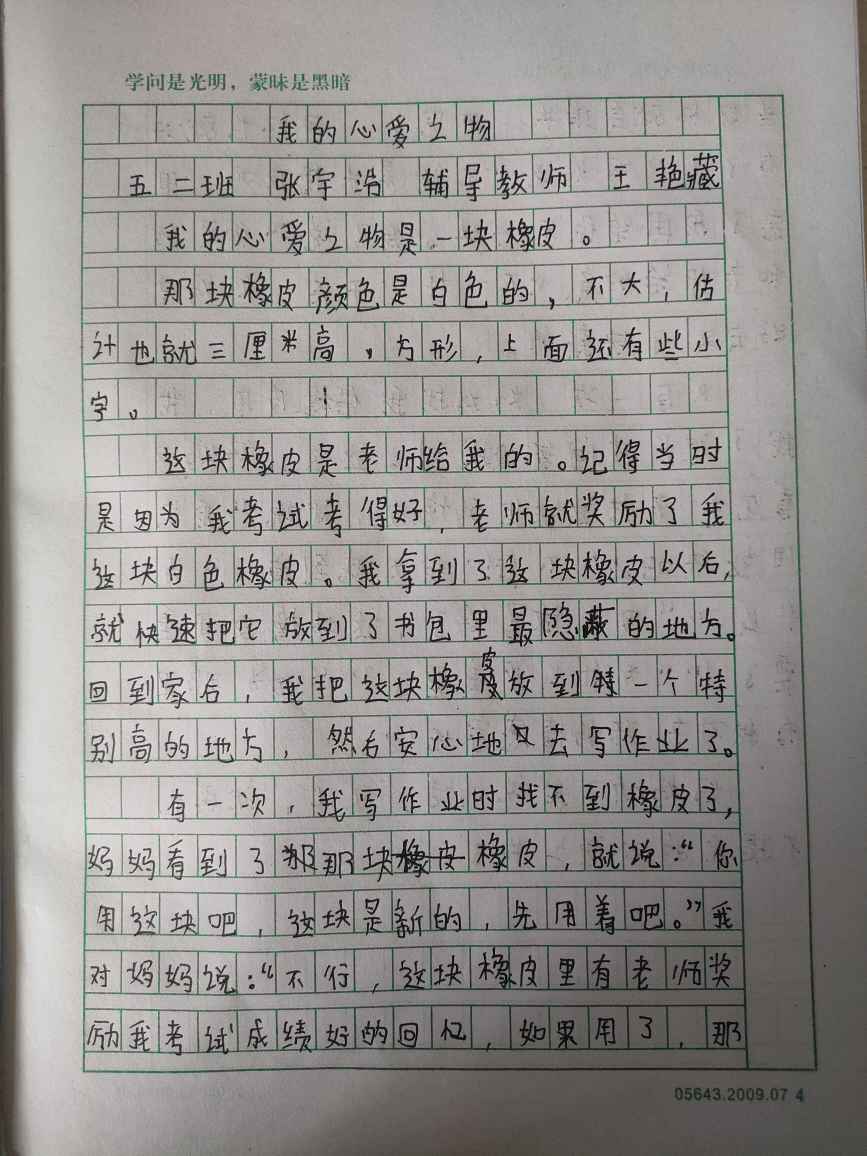 学问是光明，蒙昧是黑暗
我的心爱之物
五二班 张宇浩 辅导教师 王艳藏
我的心爱之物是一块橡皮。
那块橡皮颜色是白色的，不大，估
计也就三厘米高，方形，上面还有些小
字。
这块橡皮是老师给我的。记得当时
是因为我考试考得好，老师就奖励了我
这块白色橡皮。我拿到了这块橡皮以后，
就快速把它放到了书包里最隐蔽的地方。
回到家后，我把这块橡皮放到一个特
别高的地方，然后安心地去写作业了。
有一次，我写作业时找不到橡皮了，
妈妈看到了那块橡皮，就说：“你
用这块吧，这块是新的，先用着吧。”我
对妈妈说：“不行，这块橡皮里有老师奖
励我考试成绩好的回忆，如果用了，那
05643.2009.07 4